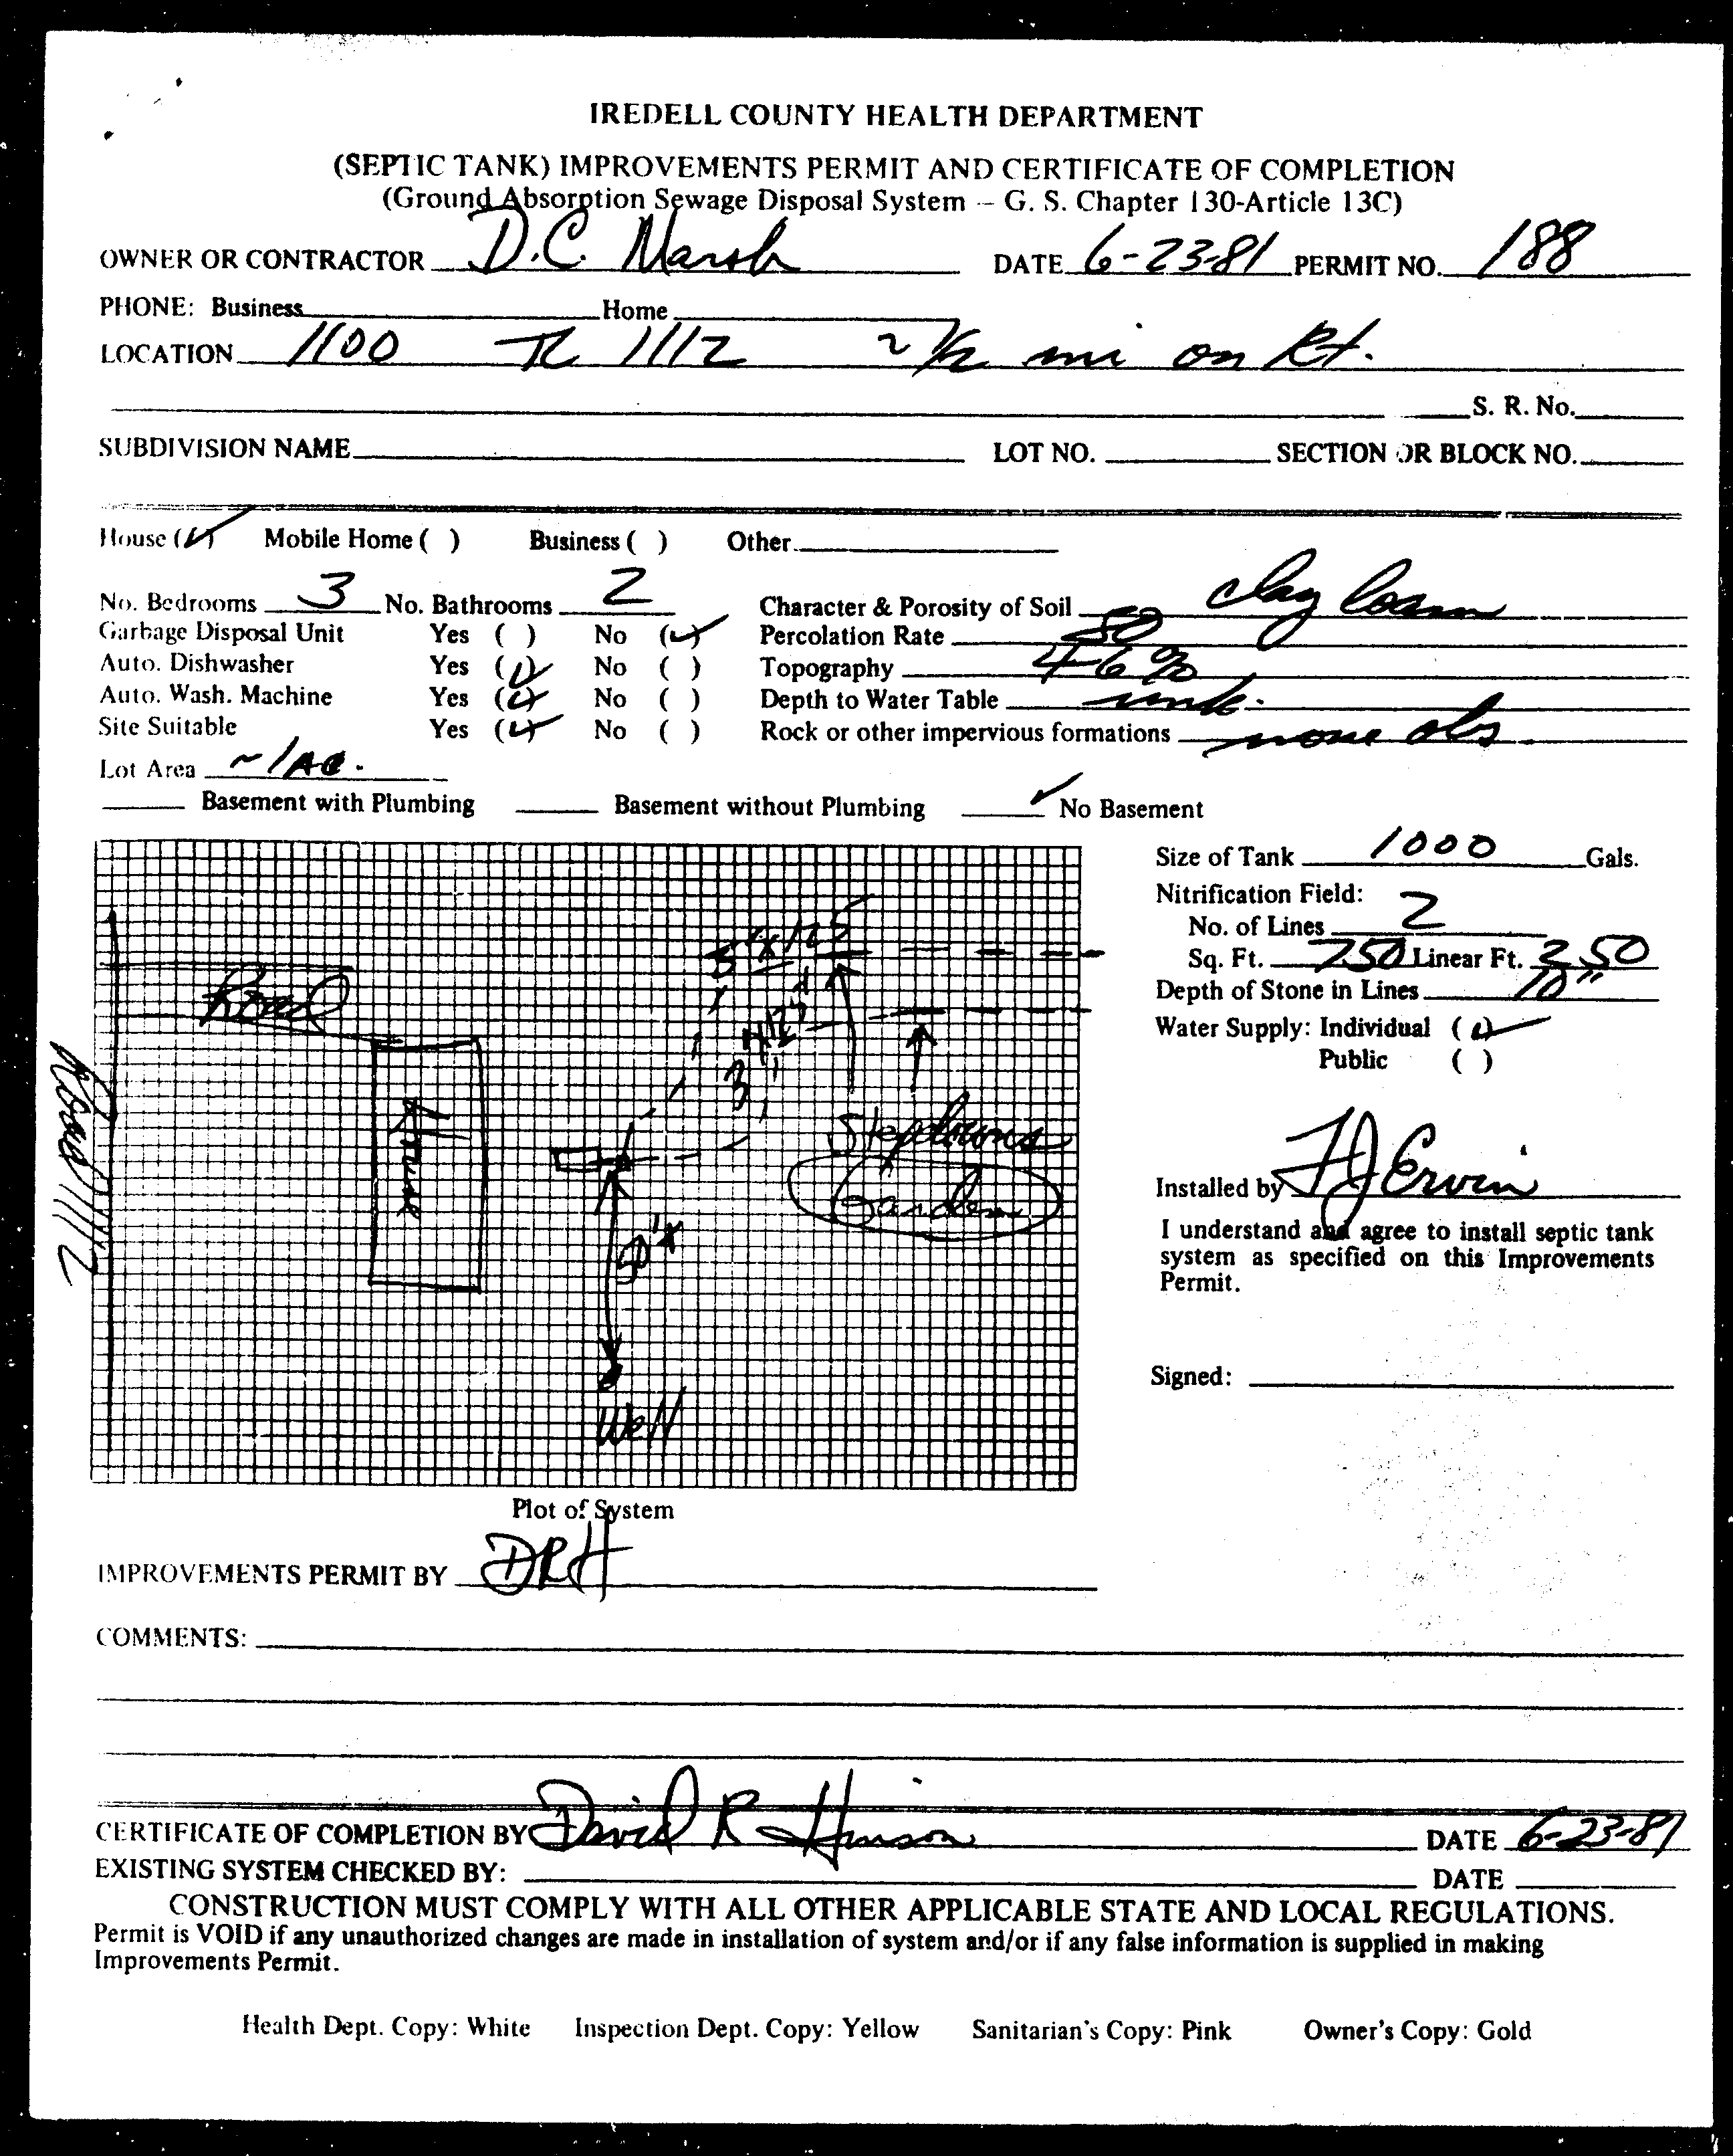 IREDELL COUNTY HEALTH DEPARTMENT
(SEPTIC TANK) IMPROVEMENTS PERMIT AND CERTIFICATE OF COMPLETION
(Ground Absorption Sewage Disposal System – G. S. Chapter 130-Article 13C)
OWNER OR CONTRACTOR D.C. Marsh DATE 6-23-81 PERMIT NO. 188
PHONE: Business Home
LOCATION 1100 TL 1112 2 1/2 mi on Rt.
S. R. No.
SUBDIVISION NAME LOT NO. SECTION OR BLOCK NO.
House (✓) Mobile Home ( ) Business ( ) Other
No. Bedrooms 3 No. Bathrooms 2 Character & Porosity of Soil clay loam
Garbage Disposal Unit Yes ( ) No (✓) Percolation Rate 50
Auto. Dishwasher Yes (✓) No ( ) Topography 4-6%
Auto. Wash. Machine Yes (✓) No ( ) Depth to Water Table unk.
Site Suitable Yes (✓) No ( ) Rock or other impervious formations none obs.
Lot Area ~1 Ac.
Basement with Plumbing Basement without Plumbing ✓ No Basement
Size of Tank 1000 Gals.
Nitrification Field:
No. of Lines 2
Sq. Ft. 750 Linear Ft. 250
Depth of Stone in Lines 10"
Water Supply: Individual (✓)
Public ( )
3' x 125
Road
3' x 125'
House
Road 1112
Stepdowns
Garden
50'+
Well
Installed by F J Ervin
I understand and agree to install septic tank
system as specified on this Improvements
Permit.
Signed:
Plot of System
IMPROVEMENTS PERMIT BY DRH
COMMENTS:
CERTIFICATE OF COMPLETION BY David R Hinson DATE 6-23-81
EXISTING SYSTEM CHECKED BY: DATE
CONSTRUCTION MUST COMPLY WITH ALL OTHER APPLICABLE STATE AND LOCAL REGULATIONS.
Permit is VOID if any unauthorized changes are made in installation of system and/or if any false information is supplied in making
Improvements Permit.
Health Dept. Copy: White Inspection Dept. Copy: Yellow Sanitarian's Copy: Pink Owner's Copy: Gold